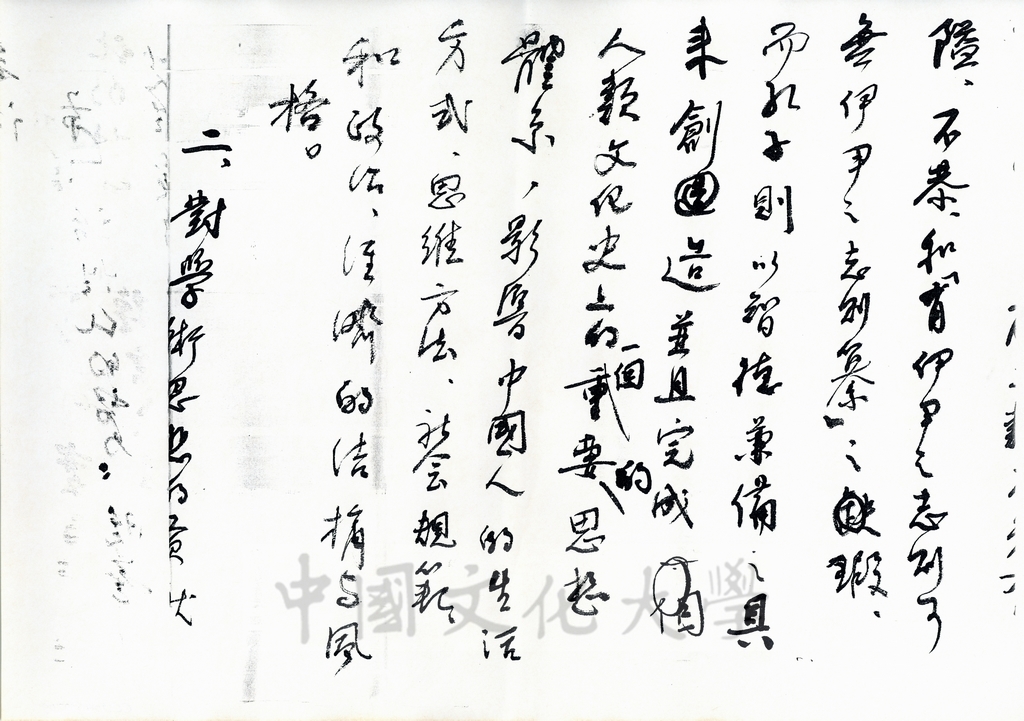 隘、不恭、和「有伊尹之志則可
無伊尹之志則篡」之缺瑕、
而孔子則以智德兼備之具
來創造並且完成
人類文化史上的一個重要的思想
體系,影響中國人的生活
方式、思維方法、社會規範
和政治、經濟的結構与風
格。
二、對學術思想的貢献
中國文化大學